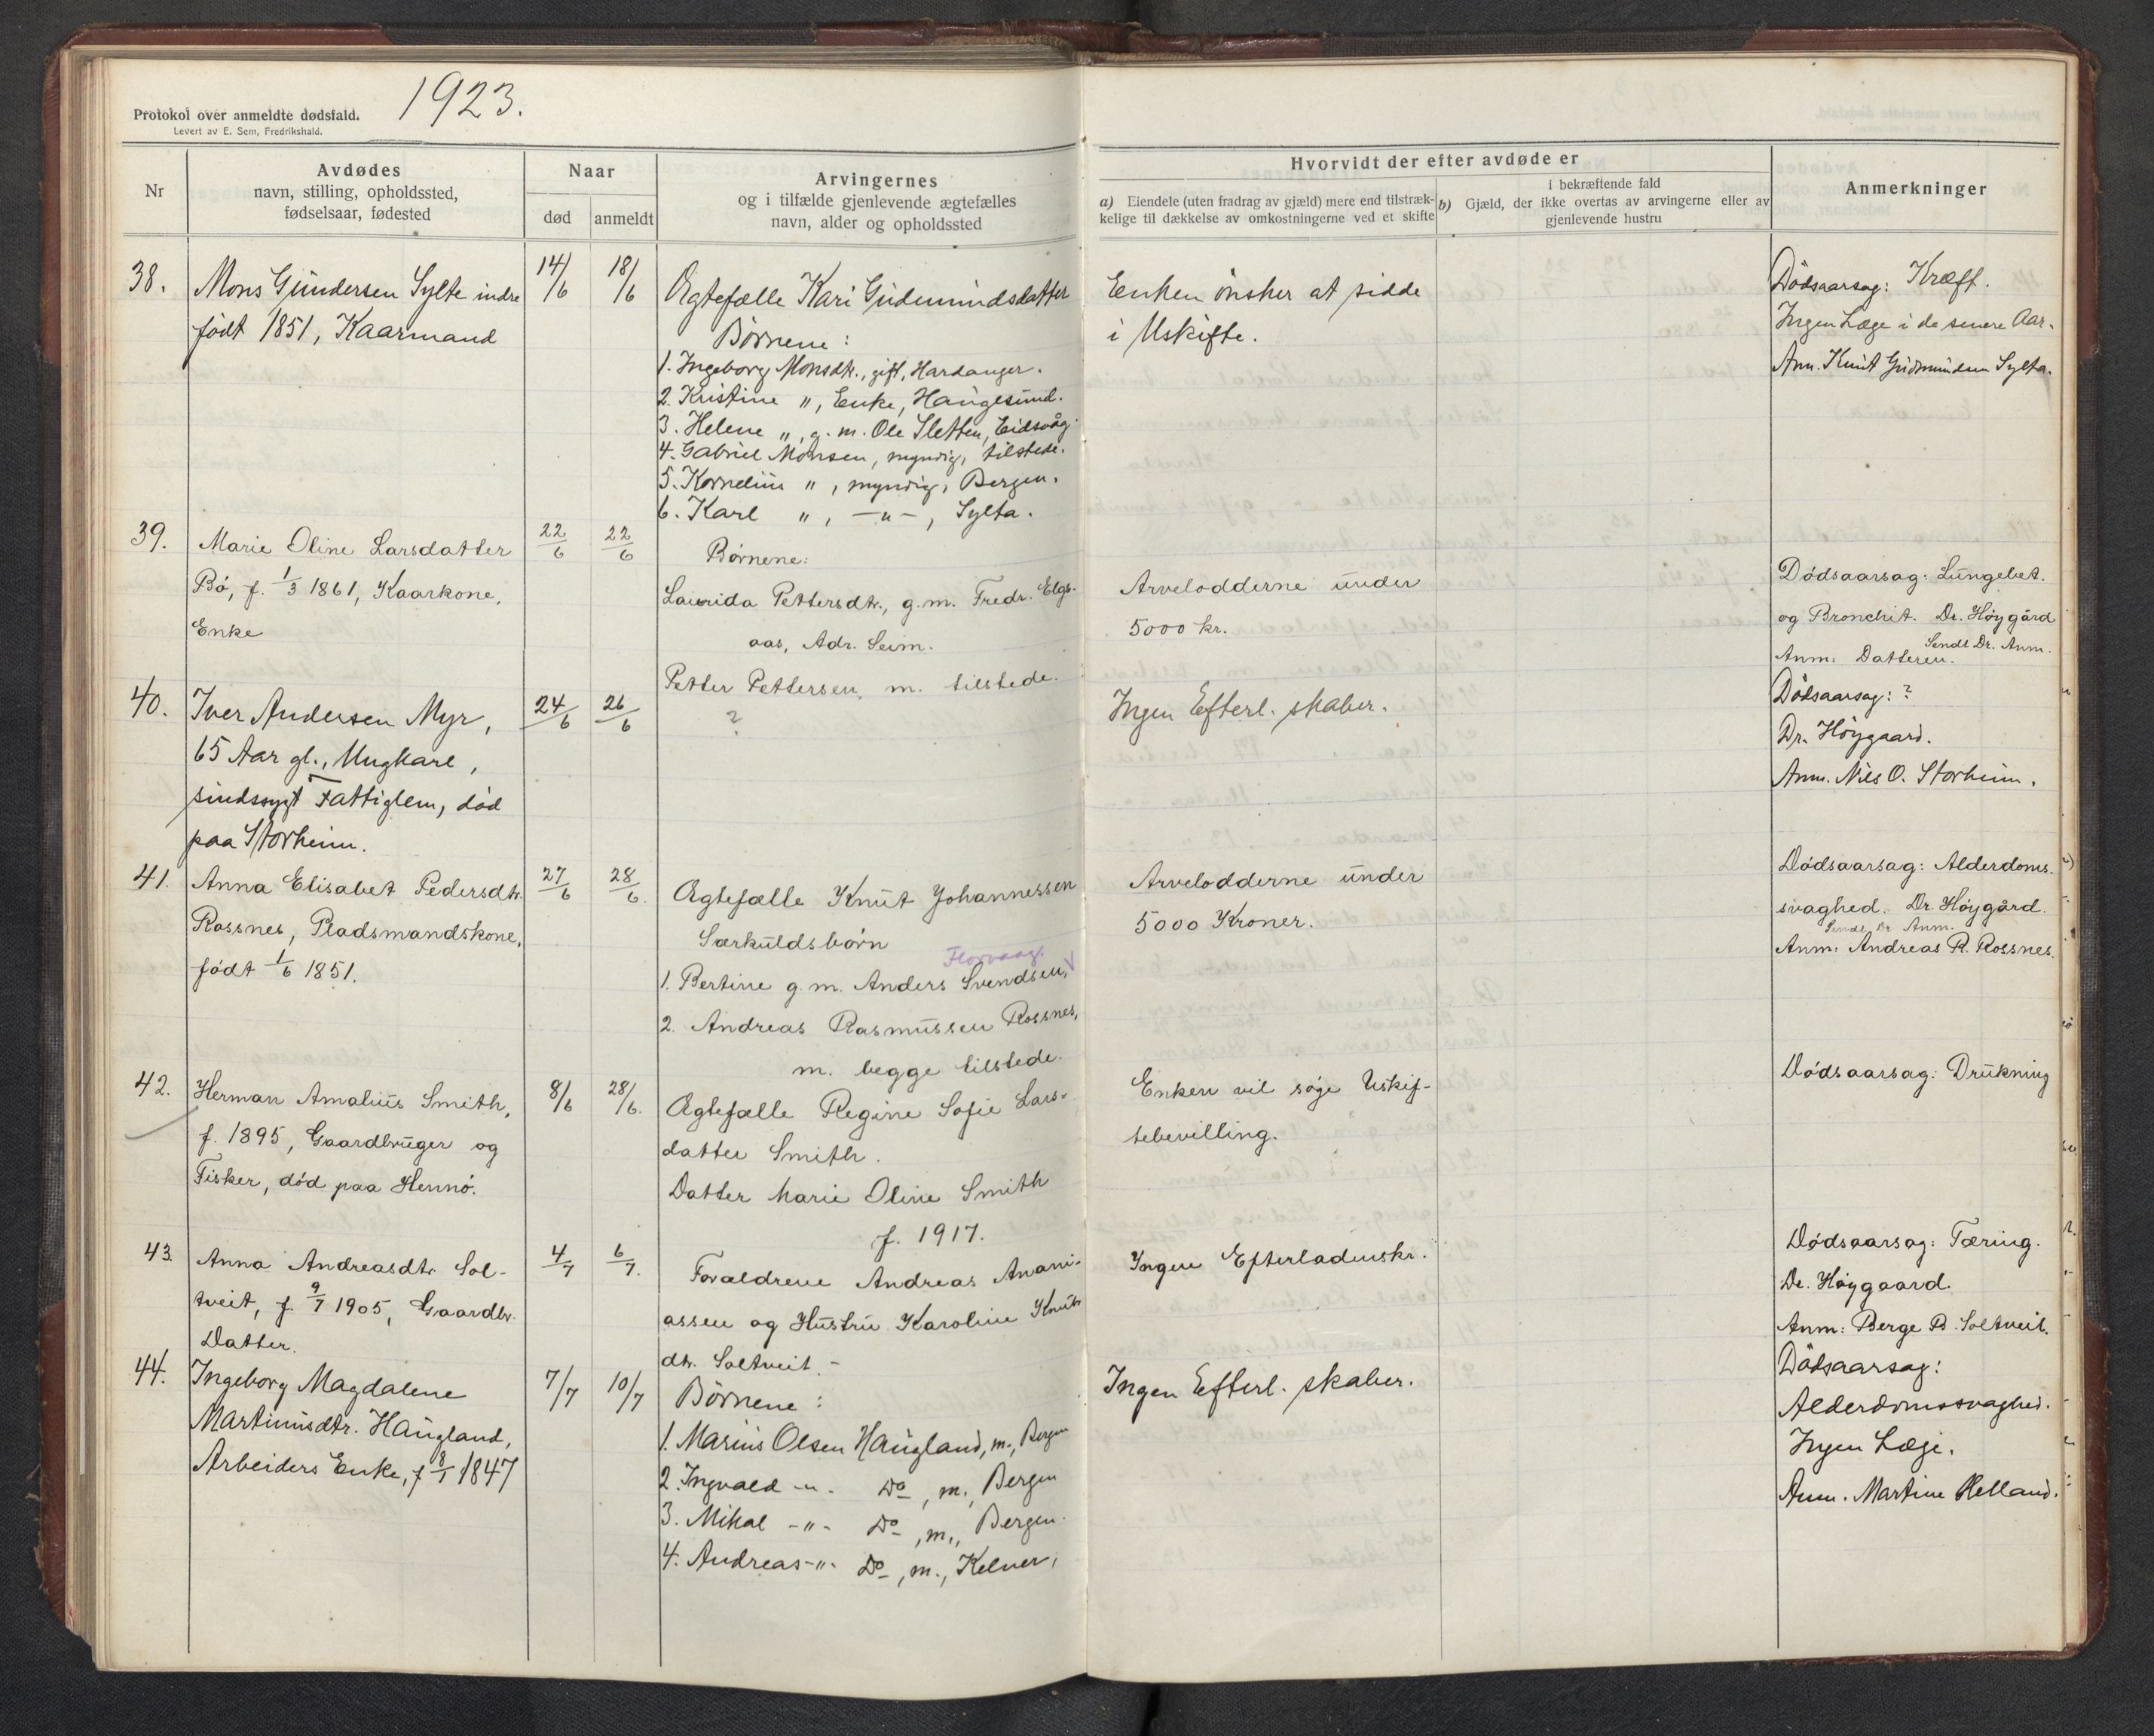 1923.
Protokol over anmeldte dødsfald.
Levert av E. Sem, Fredrikshald.
Nr
Avdødes
navn, stilling, opholdssted,
fødselsaar, fødested
Naar
død
anmeldt
Arvingernes
og i tilfælde gjenlevende ægtefælles
navn, alder og opholdssted
Hvorvidt der efter avdøde er
a) Eiendele (uten fradrag av gjæld) mere end tilstræk-
kelige til dækkelse av omkostningerne ved et skifte
i bekræftende fald
b) Gjæld, der ikke overtas av arvingerne eller av
gjenlevende hustru
Anmerkninger
38.
Mons Gundersen Sylte indre
født 1851, Kaarmand
14/6
18/6
Ægtefælle Kari Gudmundsdatter
Börnene:
1. Ingeborg Monsdtr., gift, Hardanger.
2. Kristine ", Enke, Haugesund.
3. Helene ", g. m. Ole Sletten, Eidsvåg.
4. Gabriel Monsen, myndig, tilstede.
5. Kornelius ", myndig, Bergen.
6. Karl ", -"-, Sylta.
Enken önsker at sidde
i Uskifte.
Dödsaarsag: Kræft.
Ingen Læge i de senere Aar.
Anm. Knut Gudmundsen Sylta.
39.
Marie Oline Larsdatter
Bö, f. 1/3 1861, Kaarkone,
Enke
22/6
22/6
Børnene:
Laurida Pettersdtr., g.m. Fredr. Elgs-
aas, Adr. Seim.
Petter Pettersen, m. tilstede.
Arvelodderne under
5000 kr.
Dödsaarsag: Lungebet.
og Bronchit. Dr. Høygård
Sendt Dr. Anm.
Anm: Datteren.
40.
Iver Andersen Myr,
65 Aar gl., Ungkarl,
sindssygt Fattiglem, död
paa Storheim.
24/6
26/6
?
Ingen Efterl. skaber.
Dödsaarsag: ?
Dr. Höygaard.
Anm. Nils O. Storheim.
41.
Anna Elisabet Pedersdtr.
Rossnes, Pladsmandskone,
født 1/6 1851.
27/6
28/6.
Ægtefælle Knut Johannessen
Særkuldsbørn
Florvaag.
1. Bertine g. m. Anders Svendsen,
2. Andreas Rasmussen Rossnes,
m. begge tilstede.
Arvelodderne under
5000 Kroner.
Dödsaarsag: Alderdoms-
svaghed. Dr. Høygård.
Sendt Dr Anm.
Anm: Andreas R. Rossnes.
42.
Herman Amalius Smith,
f. 1895, Gaardbruger og
Fisker, död paa Hennø.
8/6
28/6.
Ægtefælle Regine Sofie Lars-
datter Smith.
Datter Marie Oline Smith
f. 1917.
Enken vil søge Uskif-
tebevilling.
Dödsaarsag: Drukning
43.
Anna Andreasdtr Sol-
tveit, f. 9/7 1905, Gaardbr.
Datter.
4/7
6/7.
Forældrene Andreas Anani-
assen og Hustru Karoline Knuts
dtr. Soltveit -
Ingen Efterladenskr.
Dödsaarsag: Tæring.
Dr. Høygaard.
Anm: Berge B. Soltveit.
44.
Ingeborg Magdalene
Martinusdtr. Haugland,
Arbeiders Enke, f 8/1 1847
7/7
10/7
Börnene:
1. Marius Olsen Haugland, m., Bergen
2. Ingvald -"- Do, m., Bergen
3. Mikal -"- Do, m., Bergen.
4. Andreas -"- Do, m., Kelner,
Ingen Efterl. skaber.
Dödsaarsag:
Alderdomssvaghed.
Ingen Læge.
Anm. Martine Helland.